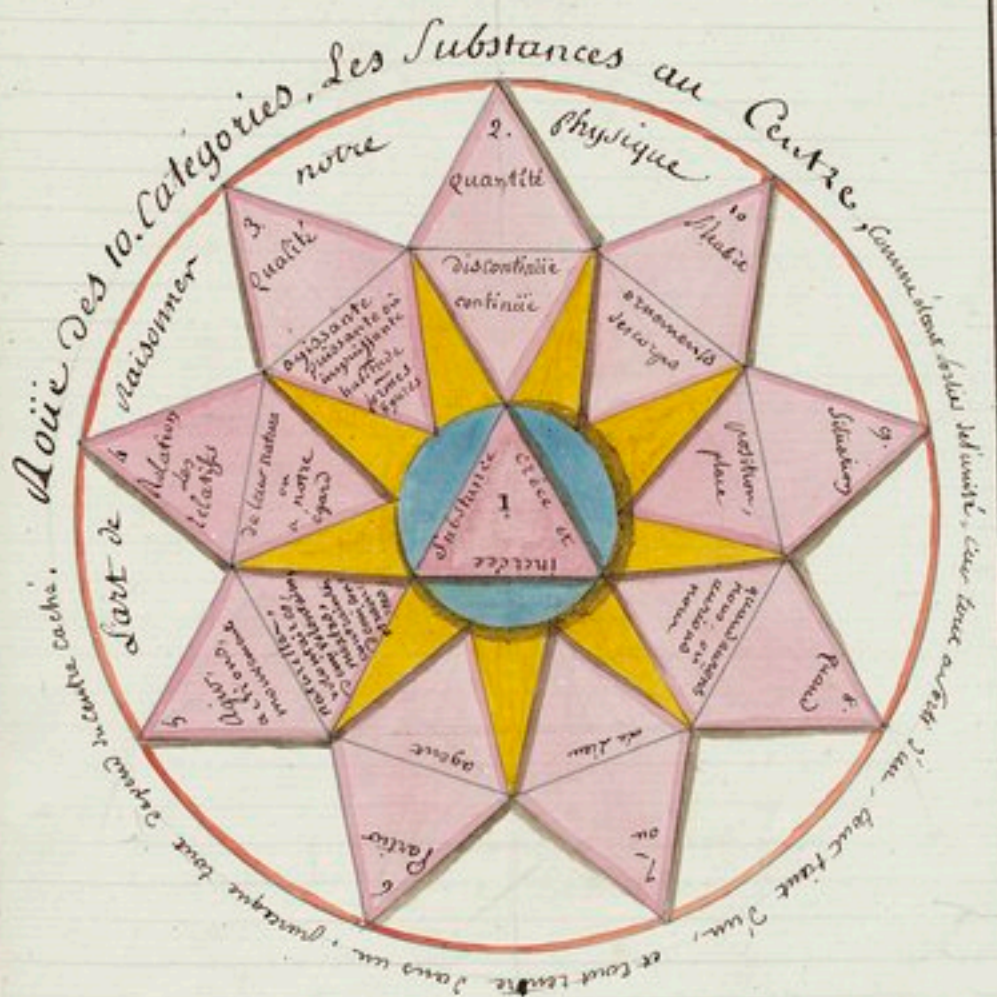 Roüe des 10. Catégories, Les Substances au Centre,
comme étant les liées de l'unité, car tout sorti d'un, tout tient d'un, et tout rentre dans un, puisque tout dépend du centre caché.
L'art de raisonner
notre physique
1.
Substance créée et incréée
2.
quantité
discontinüe
continüe
3.
Qualité
agissante
puissante ou
impuissante
habitude
formes
figures
4
Relation
des
relatifs
de leur nature
ou
a notre
egard
5
Agir
actions
mouvement
naturelle
6
Patir
agent
7
ou
du Lieu
8.
Quand
quand avons
nous ou
aurions
nous
9.
Situation
position,
place
10
l'habit
ornements
des corps